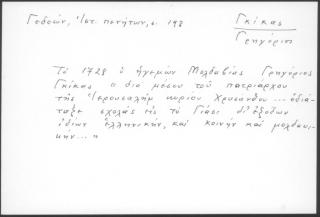 Γεδεών, Ἱστ. πενήτων, σ. 198
Γκίκας
Γρηγόριος
Τὸ 1728 ὁ ἡγεμὼν Μολδαβίας Γρηγόριος
Γκίκας "διὰ μέσου τοῦ πατριάρχου
τῆς Ἱερουσαλὴμ κυρίου Χρυσάνθου ... ἐδιά-
ταξε σχολὰς εἰς τὸ Γιάσι δι' ἐξόδων
ἰδίων ἑλληνικήν, καὶ κοινὴν καὶ μολδαυι-
κὴν ... "